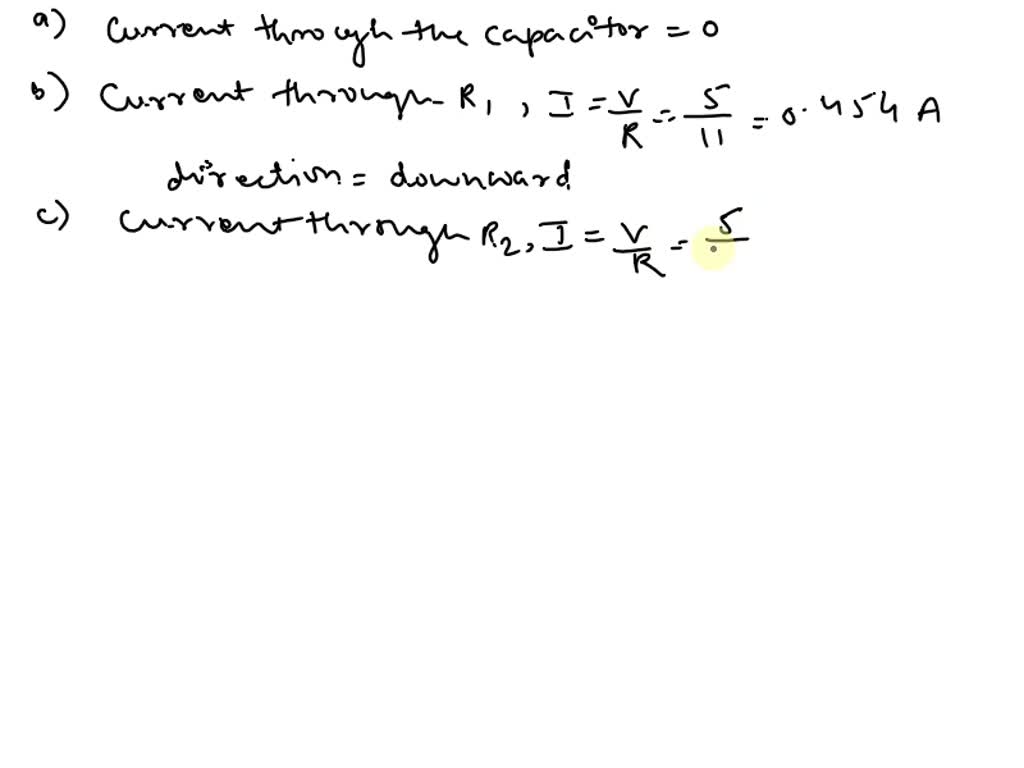 a) Current through the capacitor = 0
b) Current through R1, I = V/R = 5/11 = 0.454 A
direction = downward
c) Current through R2, I = V/R = 5/